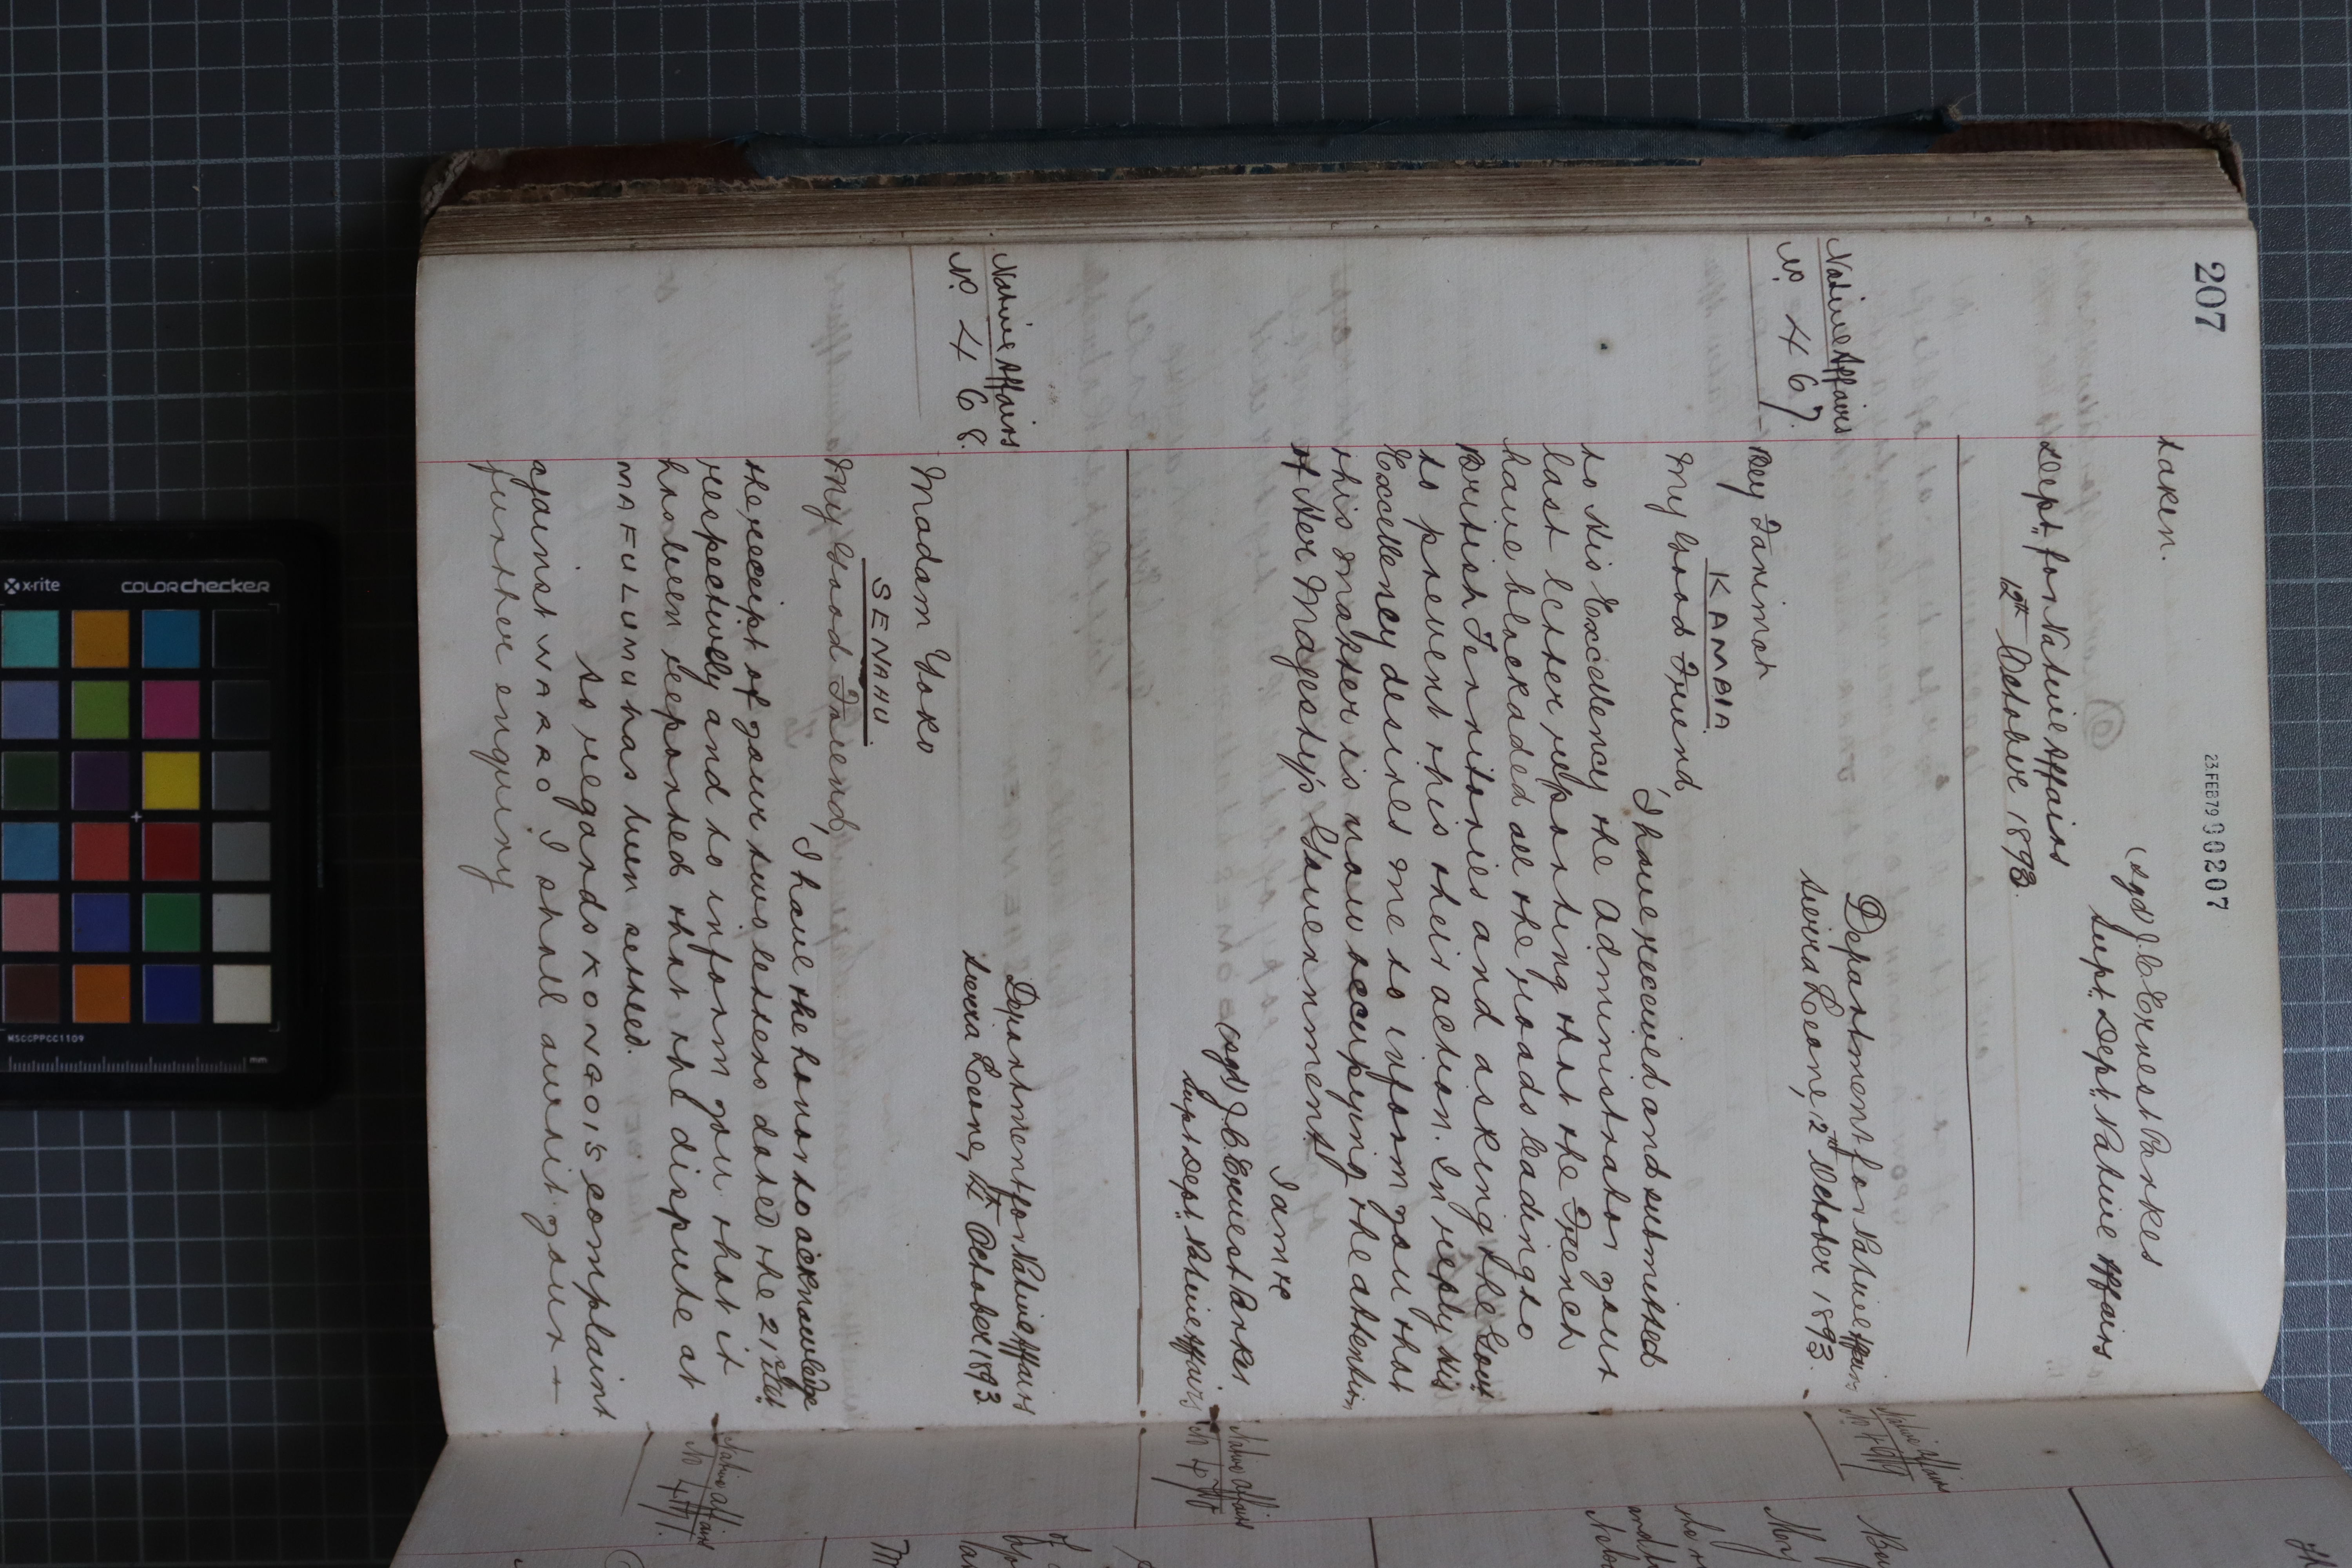 207
23FEB79 00207
taken.
(sgd) J. C. Ernest Parkes
Supt. Dept. Native Affairs
Dept. for Native Affairs
12th October 1893.
Native Affairs
No. 467
Department for Native Affairs
Sierra Leone, 12th October 1893.
Bey Farimah
KAMBIA
My Good Friend,
I have received and submitted
to His Excellency the Administrator your
last letter reporting that the French
have blockaded all the roads leading to
British Territories and asking the Govt.
to prevent this their action. In reply His
Excellency desires me to inform you that
this matter is now occupying the attention
of Her Majesty's Government
I am &c
(sgd) J. C. Ernest Parkes
Supt Dept. Native Affairs
Native Affairs
No. 468.
Department for Native Affairs
Sierra Leone, 12th October 1893
Madam Yoko
SENAHU.
My Good Friend,
I have the honor to acknowledge
the receipt of your two letters dated the 21st
respectively and to inform you that it
has been reported that the dispute at
MAFULUMU has been settled.
As regards KONGO's complaint
against WARRO I shall await your
further enquiry
Native Affairs
Native Affairs
Native Affairs
x-rite
colorchecker
MSCCPPCC1109
mm